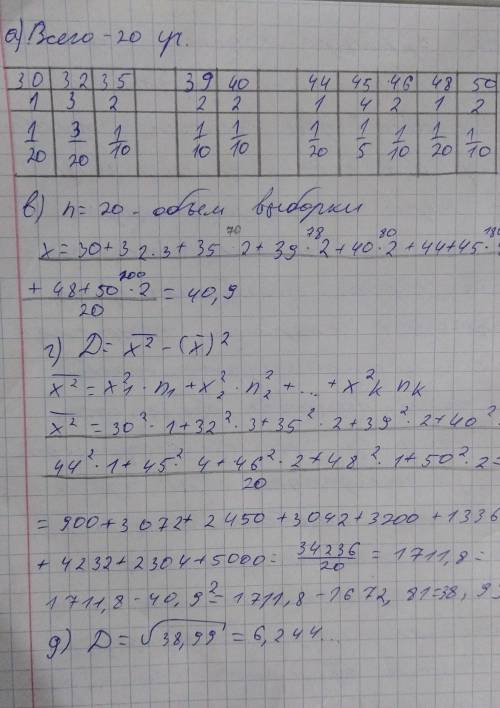 а) Всего - 20 гр.
30 32 35 39 40 44 45 46 48 50
1 3 2 2 2 1 4 2 1 2
1/20 3/20 1/10 1/10 1/10 1/20 1/5 1/10 1/20 1/10
в) n = 20 - объем выборки
70 78 80 180
x = 30 + 32 · 3 + 35 · 2 + 39 · 2 + 40 · 2 + 44 + 45 ·
+ 48 + 50 · 2 / 20 = 40,9
г) D = x̅² - (x̅)²
x̅² = x₁² · n₁ + x₂² · n₂² + ... + x²k nk
x̅² = 30² · 1 + 32² · 3 + 35² · 2 + 39² · 2 + 40²
44² · 1 + 45² · 4 + 46² · 2 + 48² · 1 + 50² · 2 = / 20
= 900 + 3072 + 2450 + 3042 + 3200 + 1336
+ 4232 + 2304 + 5000 = 34236/20 = 1711,8 =
1711,8 - 40,9² = 1711,8 - 1672,81 = 38,9
д) D = √38,99 = 6,244...